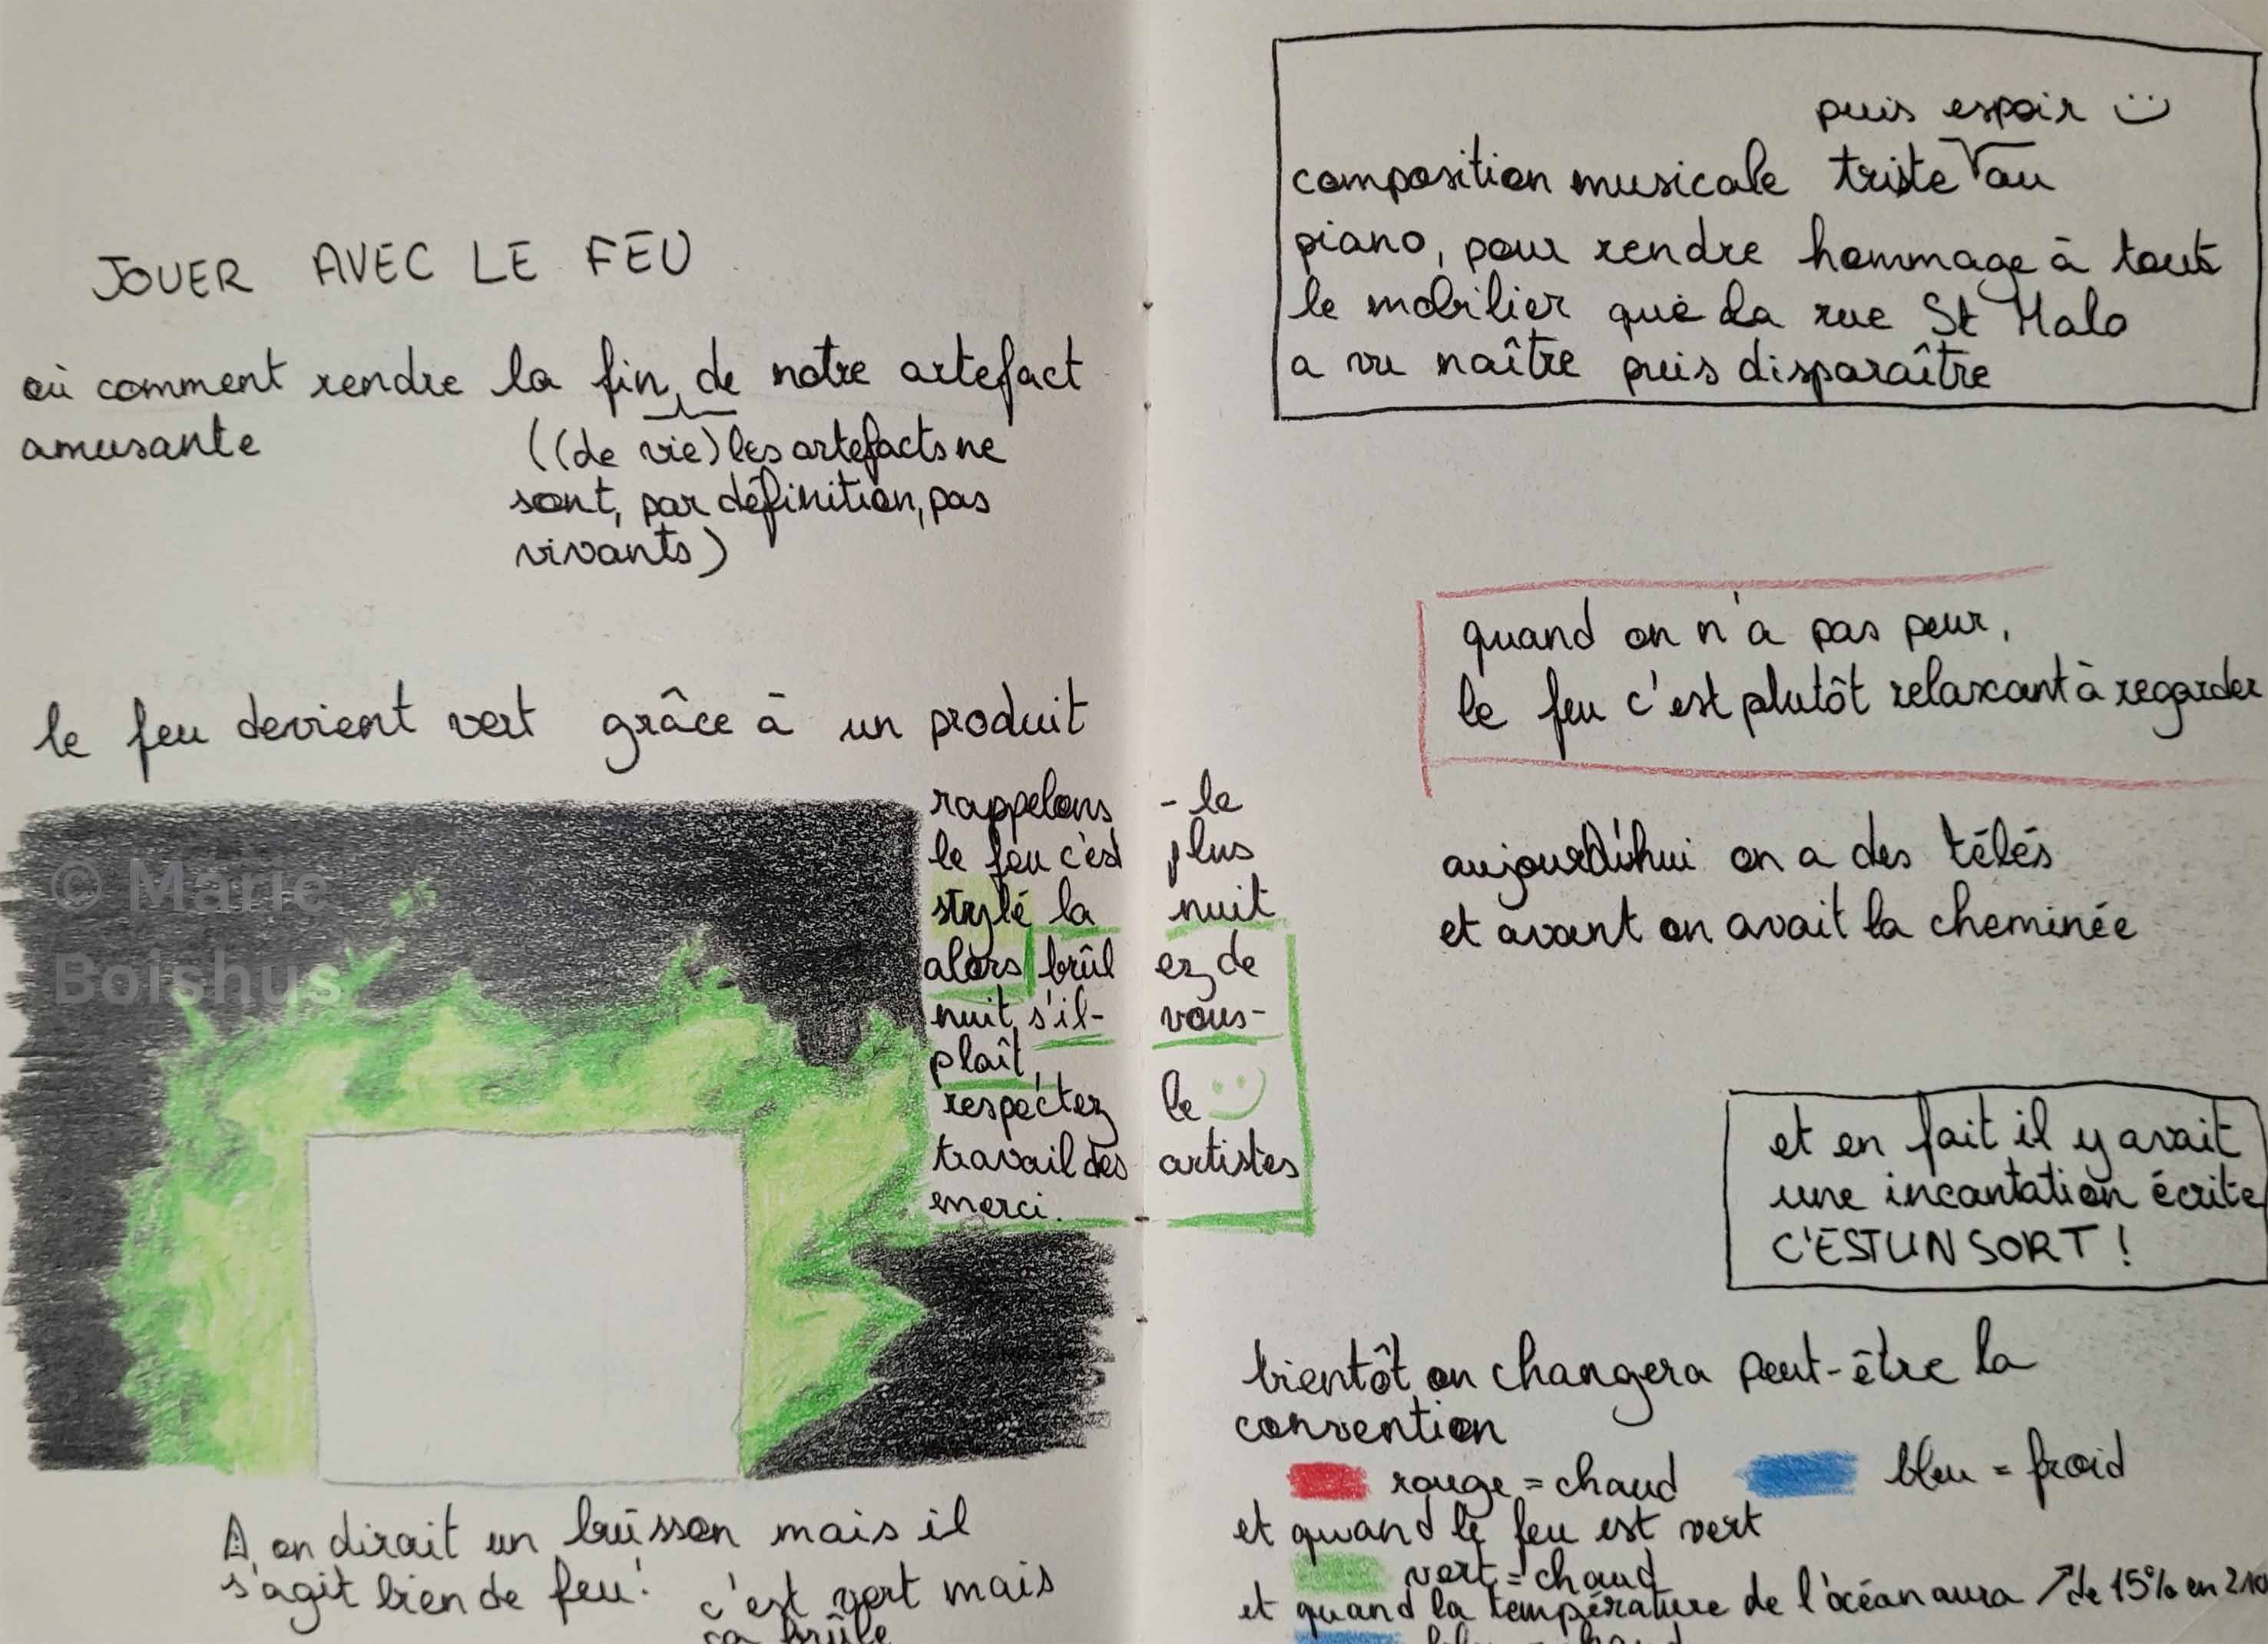 JOUER AVEC LE FEU
où comment rendre la fin de notre artefact
amusante
((de vie) les artefacts ne
sont, par définition, pas
vivants)
le feu devient vert grâce à un produit
rappelons - le
le feu c'est plus
stylé la nuit
alors brûl ez de
nuit s'il- vous-
plaît,
respectez le
travail des artistes
merci.
© Marie
Boishus
⚠ on dirait un buisson mais il
s'agit bien de feu!
c'est vert mais
ça brûle
puis espoir
composition musicale triste au
piano, pour rendre hommage à tout
le mobilier que la rue St Malo
a vu naître puis disparaître
quand on n'a pas peur,
le feu c'est plutôt relaxant à regarder
aujourd'hui on a des télés
et avant on avait la cheminée
et en fait il y avait
une incantation écrite
C'EST UN SORT !
bientôt on changera peut-être la
convention
rouge = chaud bleu = froid
et quand le feu est vert
vert = chaud
et quand la température de l'océan aura ↗ de 15% en